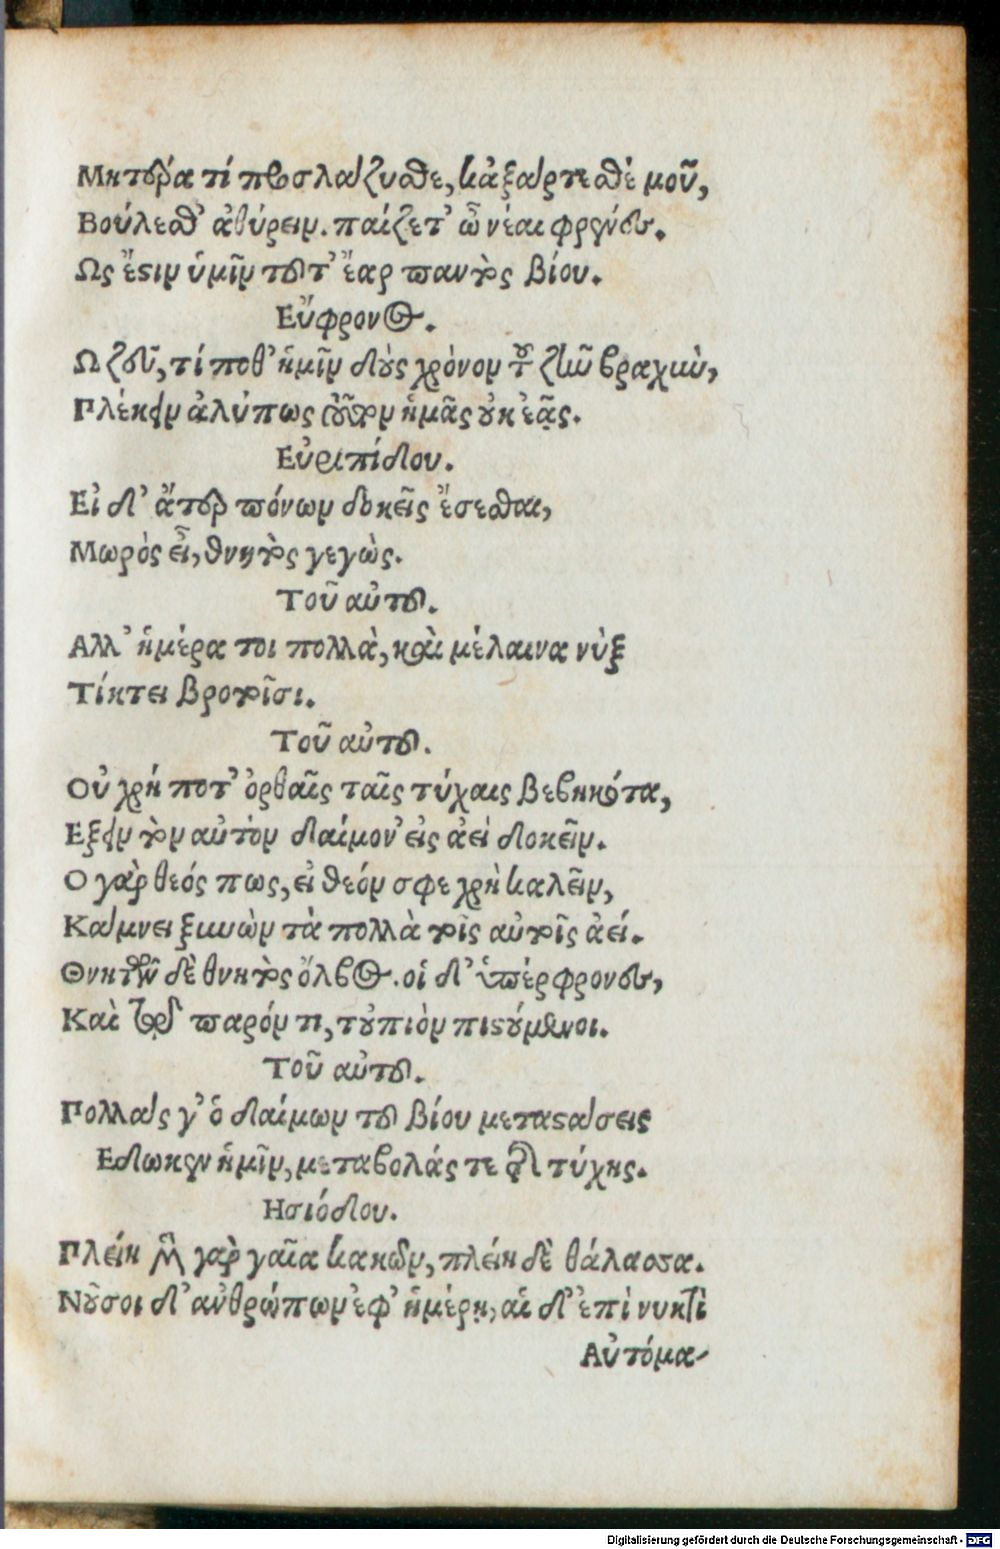 Μητέρα τί προσλάζυσθε, κἀξαρτᾶσθέ μου,
Βούλεσθ' ἀθύρειν. παίζετ' ὦ νέαι φρένες.
Ως ἔστιν ὑμῖν τοῦτ' ἔαρ παντὸς βίου.
Εὔφρονος.
Ω ζεῦ, τί ποθ' ἡμῖν δοὺς χρόνον τοῦ ζῆν βραχὺν,
Πλέκειν ἀλύπως τοῦτον ἡμᾶς οὐκ ἐᾷς.
Εὐριπίδου.
Εἰ δ' ἄτερ πόνων δοκεῖς ἔσεσθαι,
Μωρὸς εἶ, θνητὸς γεγώς.
Τοῦ αὐτοῦ.
Αλλ' ἡμέρα τοι πολλὰ, καὶ μέλαινα νὺξ
Τίκτει βροτοῖσι.
Τοῦ αὐτοῦ.
Οὐ χρή ποτ' ὀρθαῖς ταῖς τύχαις βεβηκότα,
Εξειν τὸν αὐτὸν δαίμον' εἰς ἀεὶ δοκεῖν.
Ο γὰρ θεός πως, εἰ θεόν σφε χρὴ καλεῖν,
Κάμνει ξυνὼν τὰ πολλὰ τοῖς αὐτοῖς ἀεί.
Θνητῶν δὲ θνητὸς ὄλβος. οἱ δ' ὑπέρφρονες,
Καὶ τῷ παρόν τι, τοὐπιὸν πιστούμενοι.
Τοῦ αὐτοῦ.
Πολλάς γ' ὁ δαίμων τοῦ βίου μεταστάσεις
Εδωκεν ἡμῖν, μεταβολάς τε τῆς τύχης.
Ησιόδου.
Πλείη μὲν γὰρ γαῖα κακῶν, πλείη δὲ θάλασσα.
Νοῦσοι δ' ἀνθρώπων ἐφ' ἡμέρῃ, αἱ δ' ἐπὶ νυκτὶ
Αὐτόμα-
Digitalisierung gefördert durch die Deutsche Forschungsgemeinschaft - DFG